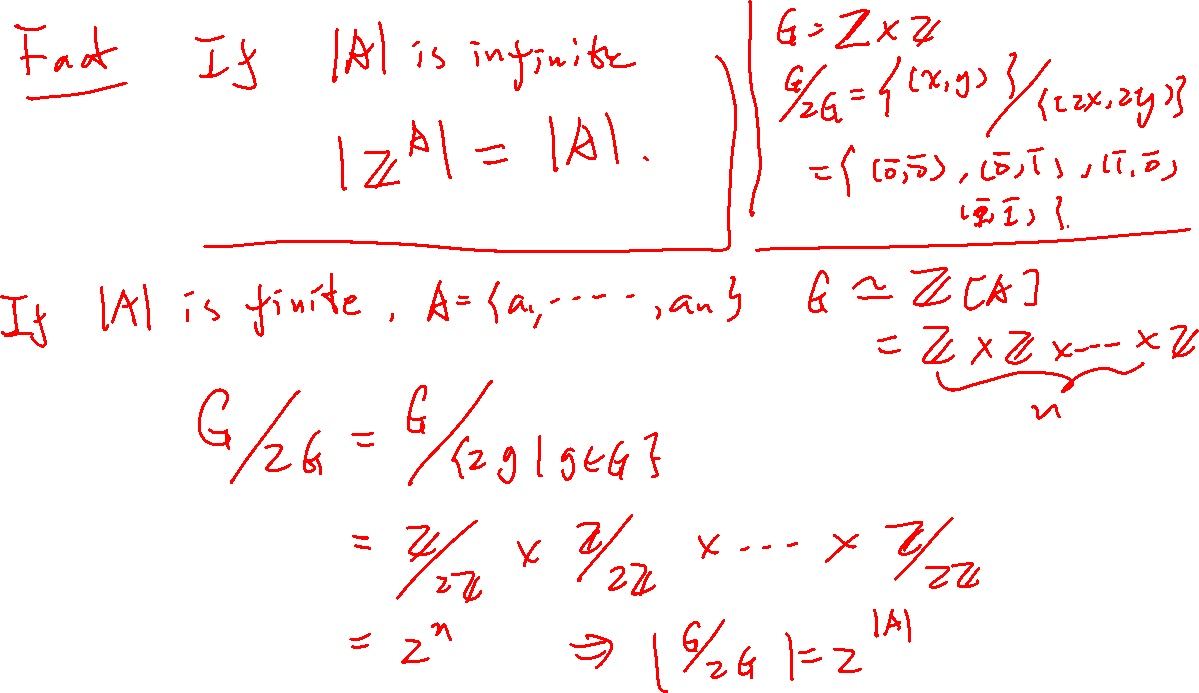 Fact If |A| is infinite
|ℤ^A| = |A|.
G = ℤ × ℤ
G/2G = {(x,y)}/{(2x,2y)}
= { (0̄,0̄), (0̄,1̄), (1̄,0̄),
(1̄,1̄) }.
If |A| is finite, A = {a₁, ----, aₙ} G ≃ ℤ[A]
= ℤ × ℤ × --- × ℤ
n
G/2G = G/{2g | g∈G}
= ℤ/2ℤ × ℤ/2ℤ × --- × ℤ/2ℤ
= 2ⁿ ⇒ |G/2G| = 2^|A|